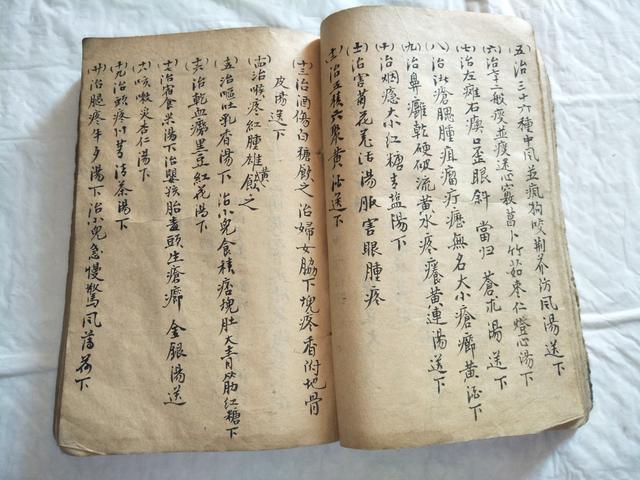 五治三十六種中風並瘋狗咬荆芥防風湯送下
六治三般痰並痰迷心竅菖卜竹茹枣仁燈心湯下
七治左癱右瘓口歪眼斜 當归 蒼术湯送下
八治 瘡腮腫疽瘤疔瘧無名大小瘡癤黄酒下
九治鼻癰乾硬破流黄水疼癢黄連湯送下
(十)治烟癮大小红糖青塩湯下
(十一)治害菊花羌活湯服害眼腫疼
(十二)治五積六聚黄酒送下
(十三)治酒傷白糖飲之 治婦女脇下塊疼香附地骨
皮湯送下
(十四)治喉疼红腫雄黄飲之
(十五)治嘔吐乳香湯下 治小兒食積痞塊肚大青筋红糖下
(十六)治乾血癆黑豆红花湯下
(十七)治宿食米湯下治嬰孩胎毒頭生瘡癤 金銀湯送
(十八)咳嗽炎杏仁湯下
(十九)治頭疼川芎清茶湯下
(廿)治腿疼牛夕湯下治小兒急慢驚風薄荷下